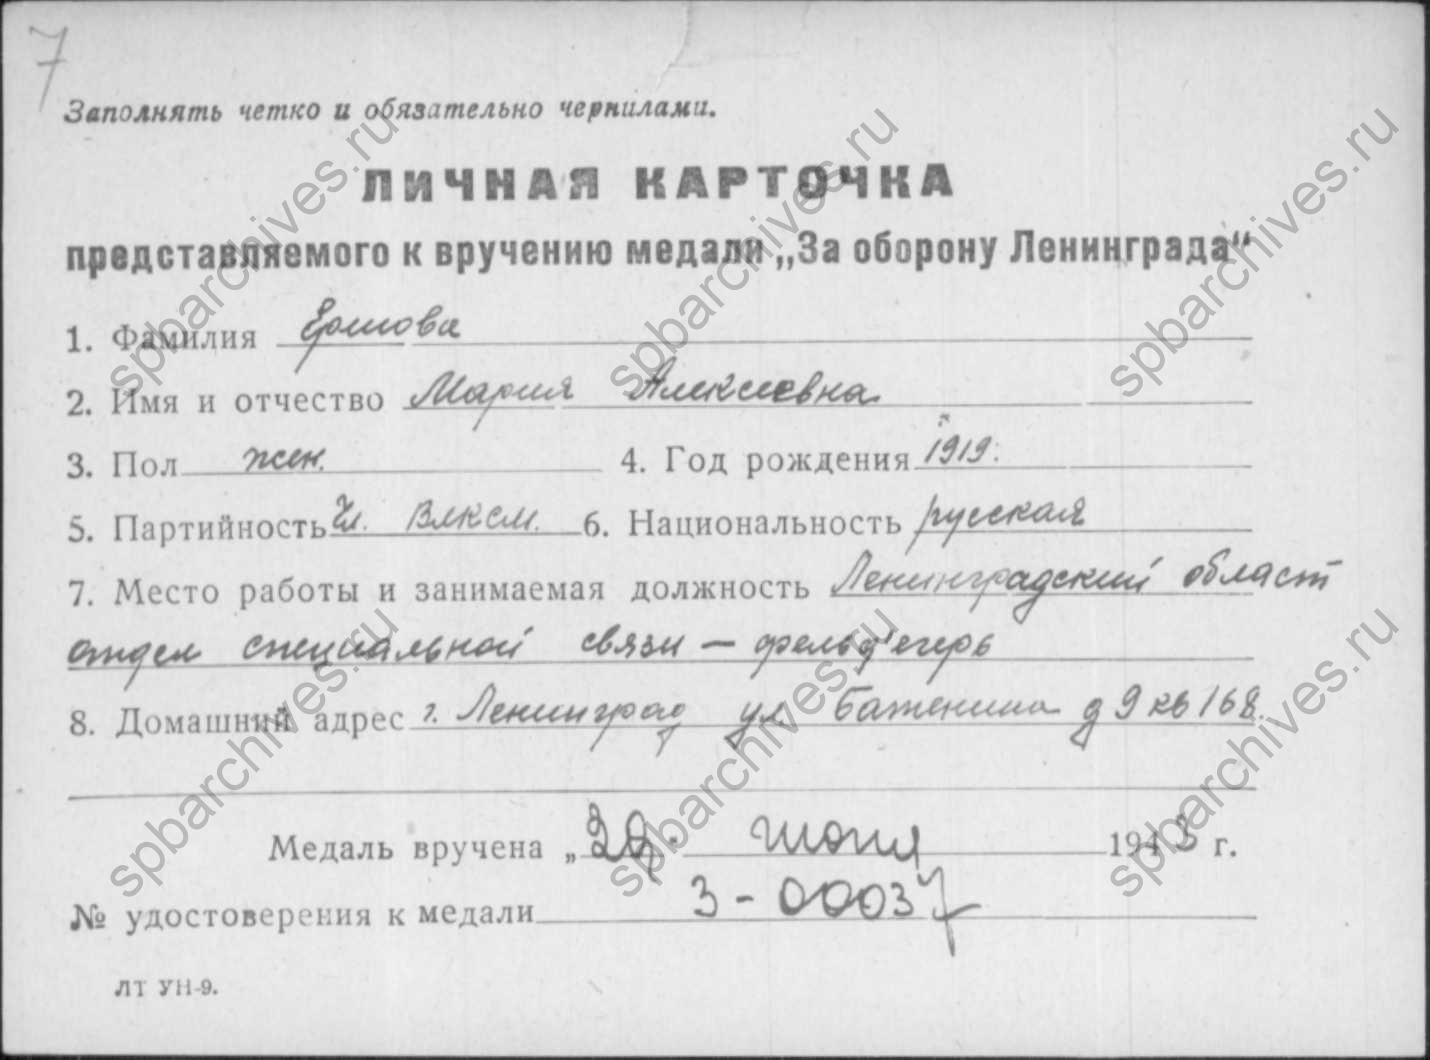 7
Заполнять четко и обязательно чернилами.
ЛИЧНАЯ КАРТОЧКА
представляемого к вручению медали „За оборону Ленинграда“
1. Фамилия Ершова
2. Имя и отчество Мария Алексеевна
3. Пол жен. 4. Год рождения 1919.
5. Партийность Чл. ВЛКСМ. 6. Национальность русская
7. Место работы и занимаемая должность Ленинградский област
отдел специальной связи – фельд'егерь
8. Домашний адрес г. Ленинград ул Баженина д 9 кв 168.
Медаль вручена „ июня 1943 г.
№ удостоверения к медали З-00037
ЛТ УН-9.
spbarchives.ru
spbarchives.ru
spbarchives.ru
spbarchives.ru
spbarchives.ru
spbarchives.ru